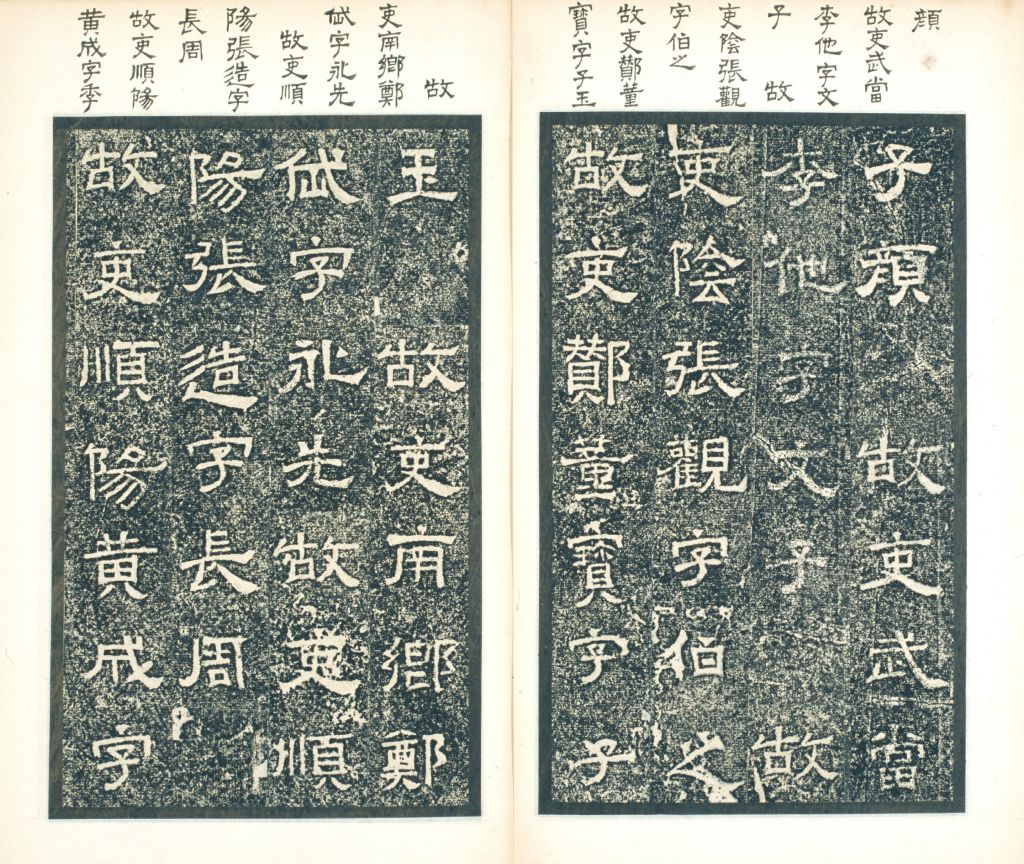 故吏武當
李他字文
子 故
吏陰張觀
字伯之
故吏酇董
寶字子玉
子 故吏武當
李他字文子 故
吏陰張觀字伯之
故吏酇董寶字子
故
吏南鄉鄭
字永先
故吏順
陽張造字
長周
故吏順陽
黃成字季
玉 故吏南鄉鄭
字永先 故吏順
陽張造字長周
故吏順陽黃成字